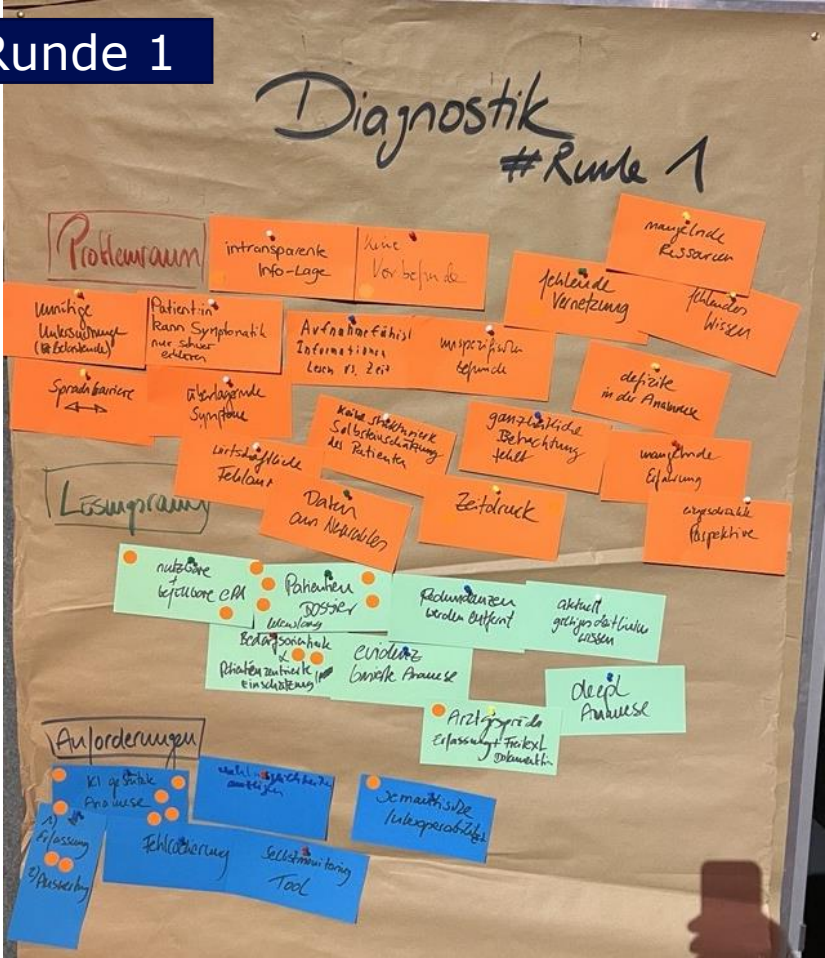 Runde 1
Diagnostik
#Runde 1
Problemraum
intransparente
Info-Lage
keine
Vorbefunde
mangelnde
Ressourcen
fehlende
Vernetzung
fehlendes
Wissen
unnötige
Untersuchung
Patient:in
kann Symptomatik
nur schwer
erklären
Informationen
Lesen vs. Zeit
unspezifische
Befunde
defizite
in der Anamnese
Sprachbarriere
überlagernde
Symptome
keine strukturierte
Selbsteinschätzung
des Patienten
ganzheitliche
Betrachtung
fehlt
mangelnde
Erfahrung
wirtschaftliche
Daten
aus
Zeitdruck
eingeschränkte
Perspektive
Lösungsraum
nutzbare
+
befüllbare ePA
Patienten
Dossier
Redundanzen
werden entfernt
aktuell
wissen
Bedarfsorientierte
&
Patientenzentrierte
Einschätzung
evidenz
basierte Anamnese
deepl
Anamnese
Arztgespräche
Erfassung + Freitext
Dokumentation
Anforderungen
KI gestützte
Anamnese
semantische
Interoperabilität
1)
Erfassung
2) Auswertung
Selbstmonitoring
Tool